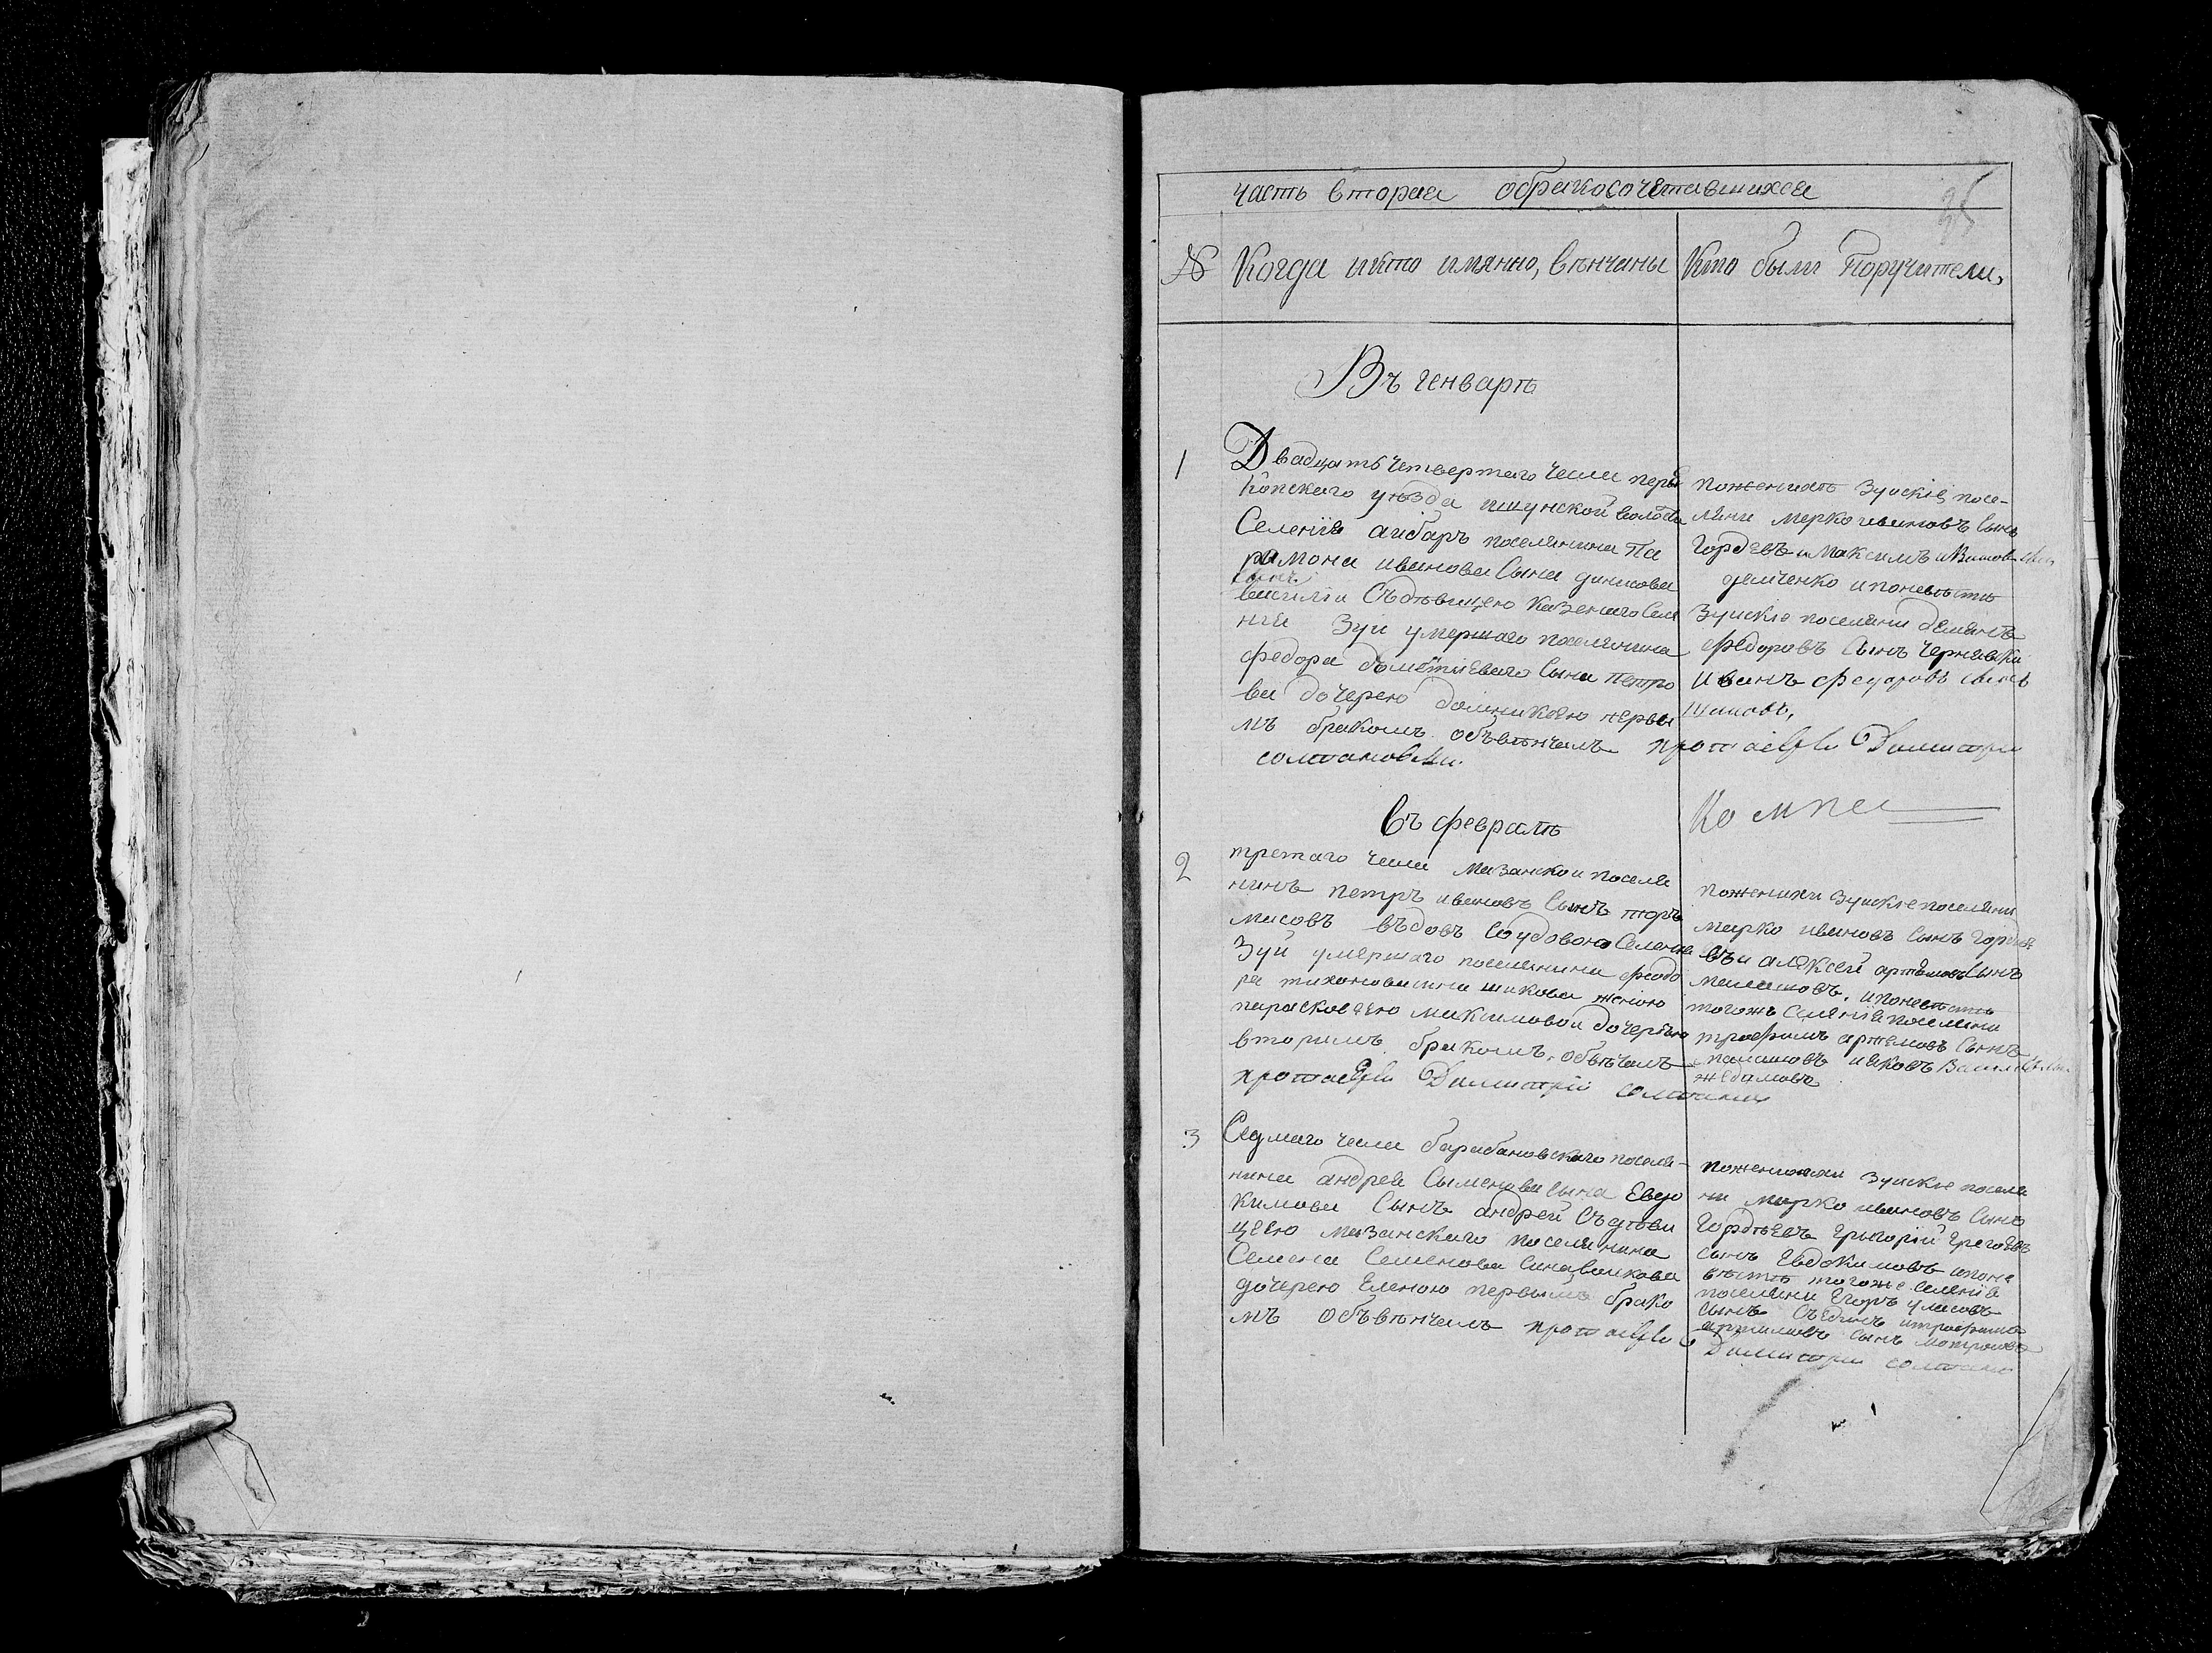 часть вторая обракосочетавшихся
25
№ Когда икто имянно, вѣнчаны
Кто были Поручители,
Въ генварѣ
1
Двадцать четвертаго числа пере
копскаго уѣзда ишунской волости
Селенія айбаръ поселянина Па
рамона иванова Сына денисова
сынъ
василіи Съдѣвицею Казенаго Селе
нія Зуи умершаго поселянина
федора Сына петро
ва дочерею домникѣею первы
мъ бракомъ объвѣнчалъ протоіерей Димитрій
солтановски.
поженихѣ Зуискіе посе-
ляни марко ивановъ Сынъ
Гордѣевъ и Максимъ
демченко ипоневѣстѣ
Зуискіе поселяни демянъ
федоровъ Сынъ чернявски
Иванъ федоровъ сынъ
шишовъ,
въ февралѣ
2
третаго числа мазанскои поселя
нинъ петръ ивановъ Сынъ
масовъ въдовъ Содовою Селенія
Зуи умершаго поселянина федо
ра тихонова сина шикова женою
парасковѣею максимовои дочерью
вторимъ бракомъ. обвѣчалъ
протоіерей Димитрій
поженихи зуискіе поселяни
марко ивановъ Сынъ горде
въи алексей артемовъ Сынъ
ипоневѣстѣ
тогожъ Селенія поселяни
трофимъ артемовъ Сынъ
и яковъ
3
Седмаго числа барабановскаго поселя-
нина андрея Сыменова сына Евдо
кимова Сынъ андрей Съдѣви
цею мазанскаго поселянина
Семена Семенова Сина волкова
дочерею Еленою первымъ брако
мъ объвѣнчалъ протоіерей
Димитрій
поженихи Зуискіе поселя
ни марко ивановъ Сынъ
Гордѣевъ Григорій
сынъ Евдокимовъ ипоне
вѣстѣ тогоже Селенія
поселяни Егоръ
сынъ итрофимъ
сынъ